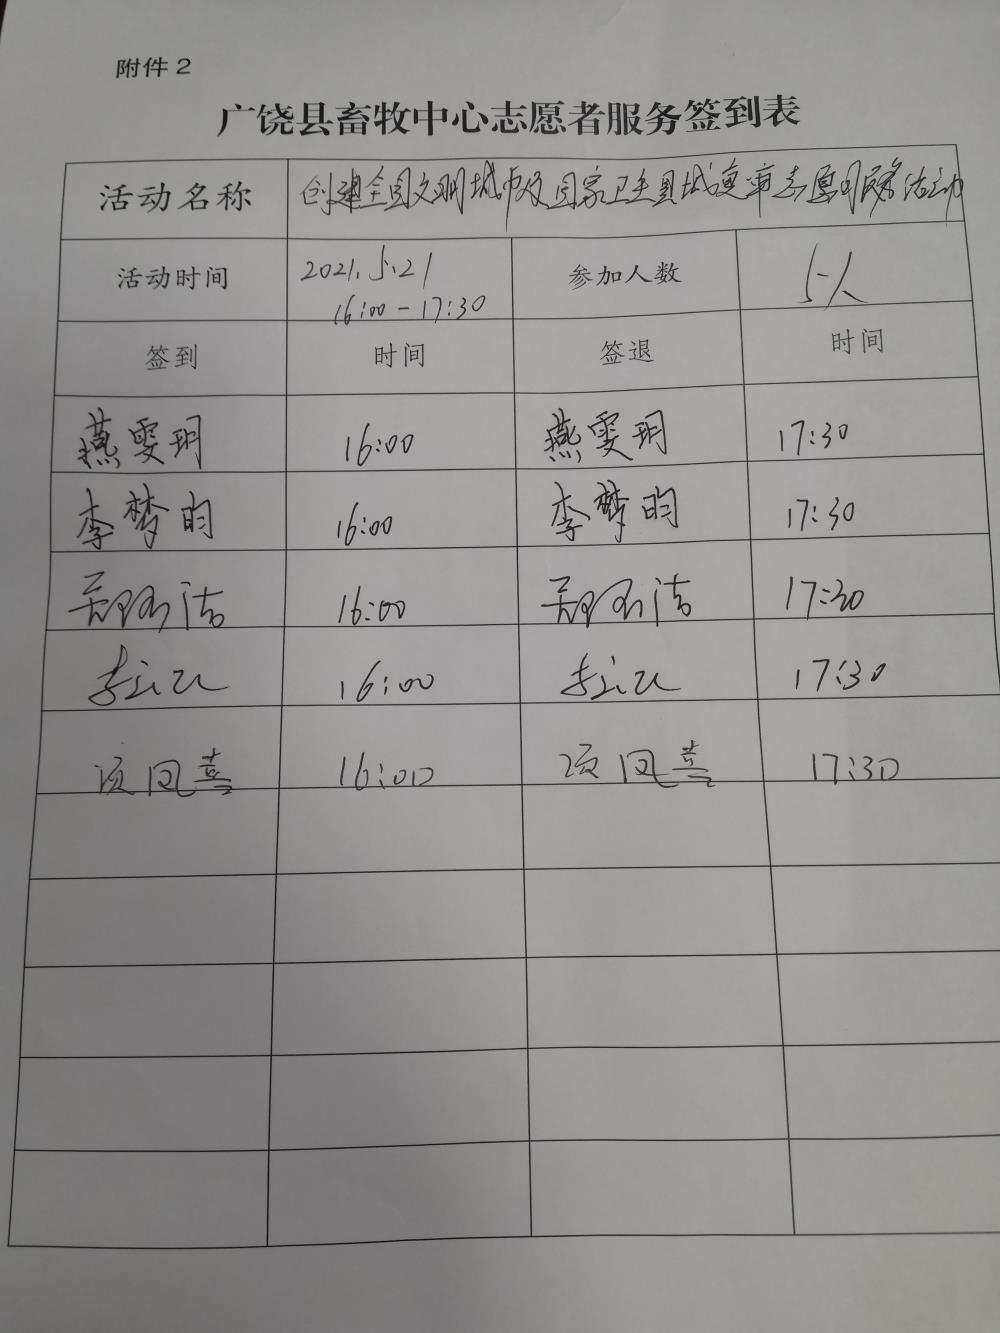 附件2
广饶县畜牧中心志愿者服务签到表
活动名称 创建全国文明城市及国家卫生县城复审志愿服务活动
活动时间 2021.5.21 参加人数 5人
16:00-17:30
签到 时间 签退 时间
燕雯玥 16:00 燕雯玥 17:30
李梦昀 16:00 李梦昀 17:30
16:00 17:30
16:00 17:30
项凤喜 16:00 项凤喜 17:30